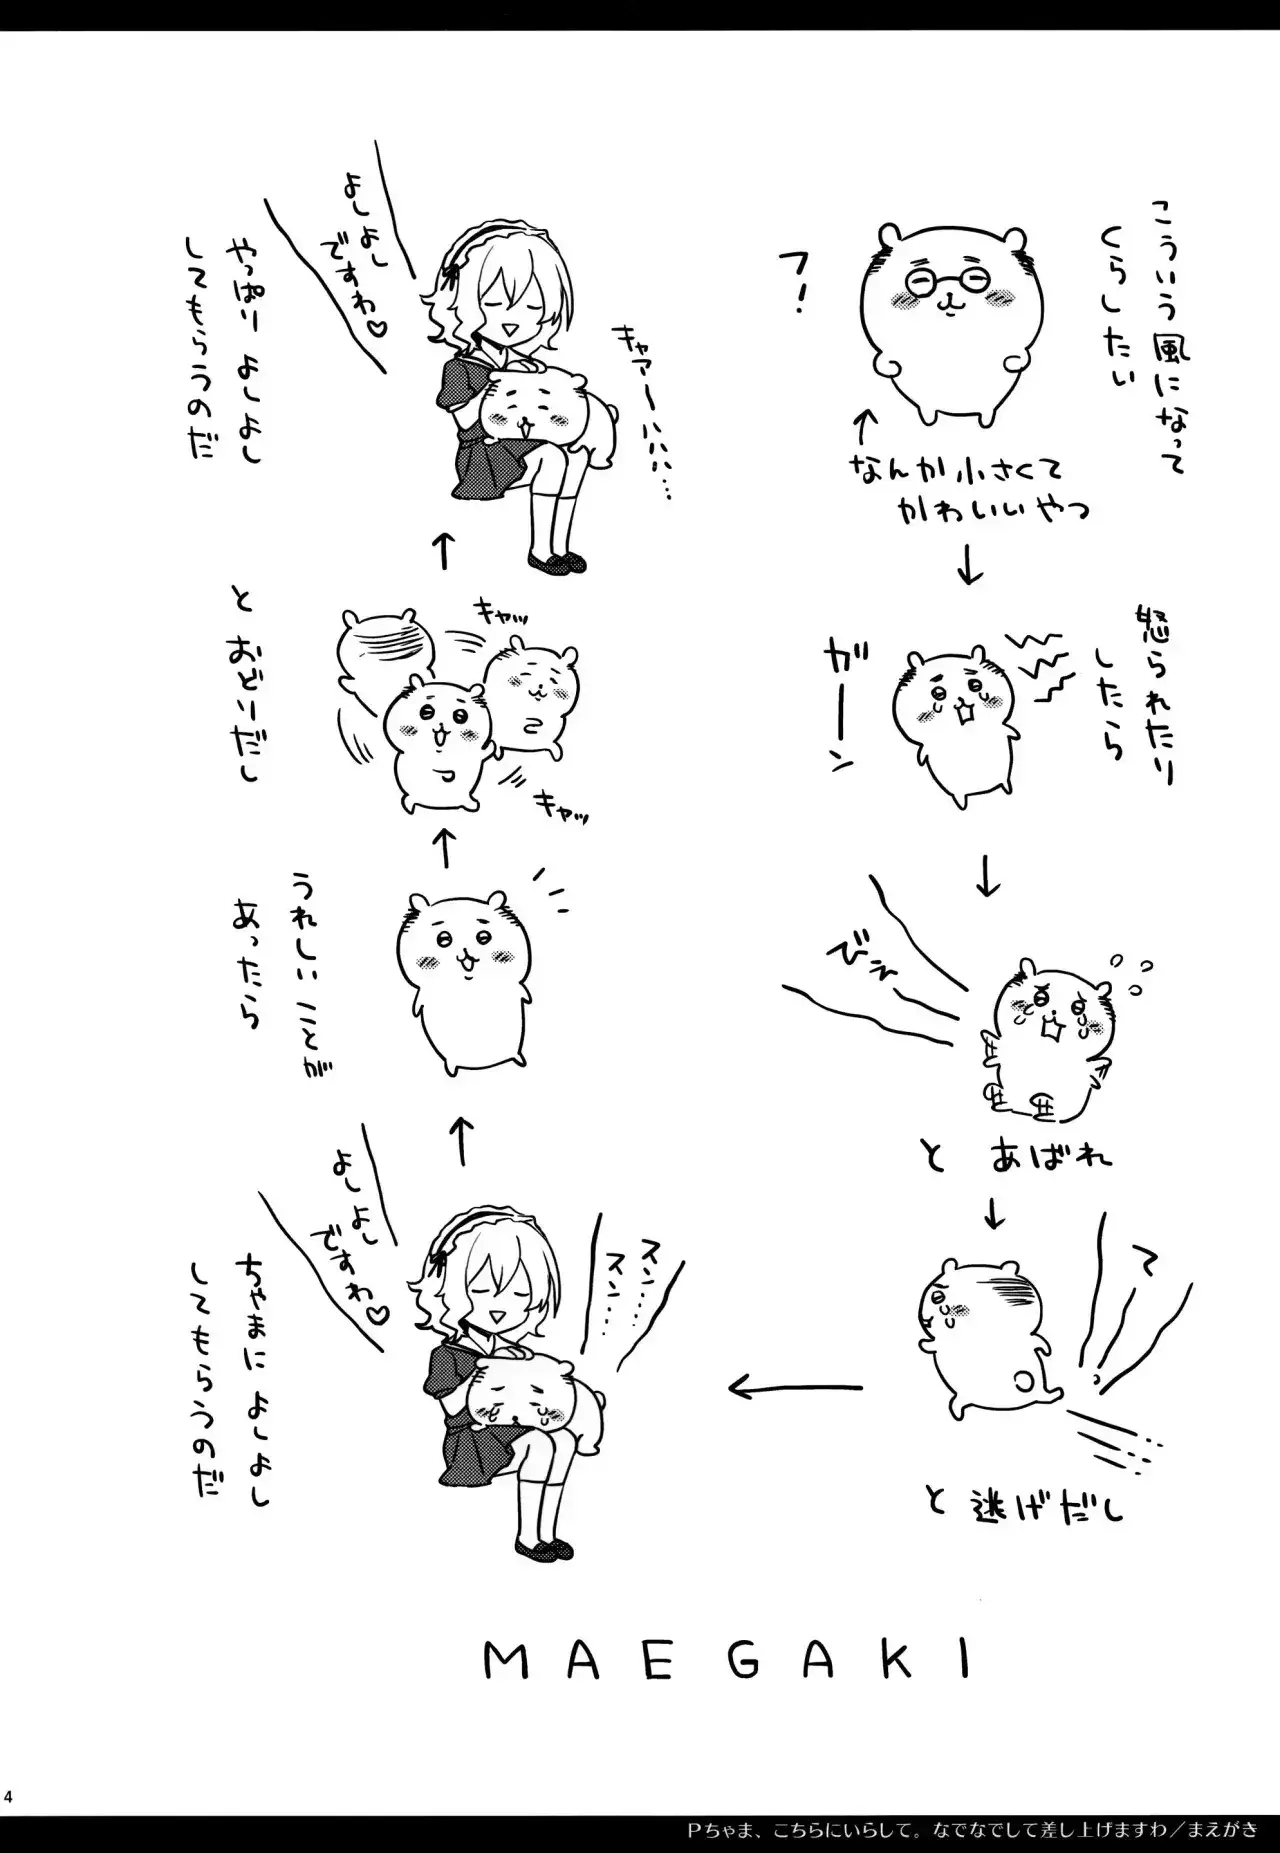 こういう風になって
くらしたい
フ！
↑
なんか小さくて
かわいいやつ
↓
怒られたり
したら
ガーーン
↓
びえ
と あばれ
↓
て
と 逃げだし
←
スン……
スン……
よしよし
ですわ♡
ちゃまに よしよし
してもらうのだ
↑
うれしい ことが
あったら
↑
キャッ
キャッ
と おどりだし
↑
キャアーハハハ…
よしよし
ですわ♡
やっぱり よしよし
してもらうのだ
MAEGAKI
4
Pちゃま、こちらにいらして。なでなでして差し上げますわ／まえがき